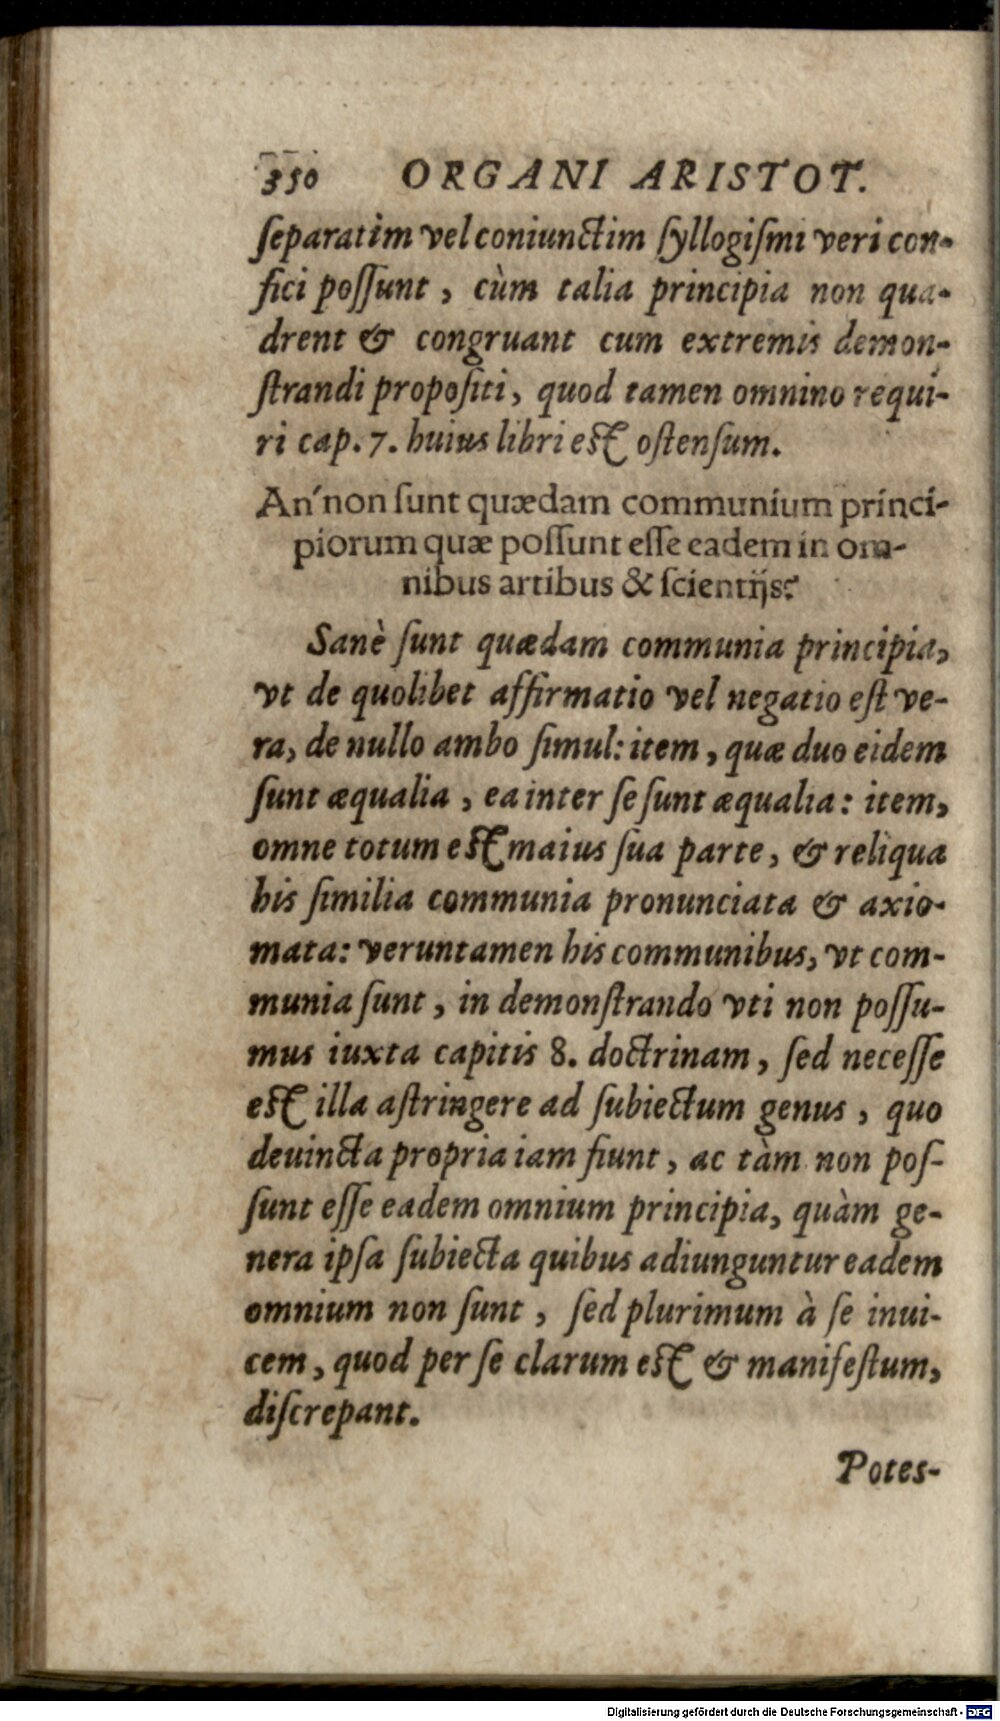 350 ORGANI ARISTOT.
ſeparatim vel coniunctim ſyllogiſmi veri con-
fici poſſunt, cùm talia principia non qua-
drent & congruant cum extremis demon-
ſtrandi propoſiti, quod tamen omnino requi-
ri cap. 7. huius libri est oſtenſum.
An' non ſunt quædam communium princi-
piorum quæ poſſunt eſſe eadem in om-
nibus artibus & ſcientijs?
Sanè ſunt quædam communia principia,
vt de quolibet affirmatio vel negatio eſt ve-
ra, de nullo ambo ſimul: item, quæ duo eidem
ſunt æqualia, ea inter ſe ſunt æqualia: item,
omne totum est maius ſua parte, & reliqua
his ſimilia communia pronunciata & axio-
mata: veruntamen his communibus, vt com-
munia ſunt, in demonſtrando vti non poſſu-
mus iuxta capitis 8. doctrinam, ſed neceſſe
est illa aſtringere ad ſubiectum genus, quo
deuincta propria iam fiunt, ac tàm non poſ-
ſunt eſſe eadem omnium principia, quàm ge-
nera ipſa ſubiecta quibus adiunguntur eadem
omnium non ſunt, ſed plurimum à ſe inui-
cem, quod per ſe clarum est & manifeſtum,
diſcrepant.
Potes-
Digitalisierung gefördert durch die Deutsche Forschungsgemeinschaft - DFG